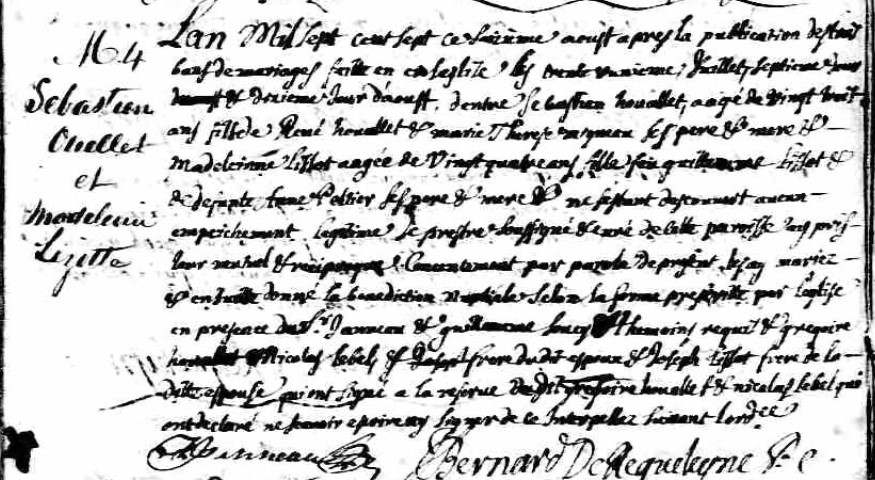 M 4
Sebastien
Ouellet
et
Madeleine
Lizotte
Lan Mil Sept cent sept ce saisieme aoust apres la publication des trois
bans de mariages faitte en cest eglize les trente unieme Juillet, septieme
& dixieme Jour daoust, d'entre Sebastien houallet, aagé de vingt huit
ans fils de René houallet & marie Therese mignau ses pere & mere &
Madeleinne Lissot aagée de Vingt quatre ans fille feu guillaume Lissot &
de defunte Anne Peltier ses pere & mere & ne sestant descouvert aucun
empeichement legitime Je prestre soussigné & curé de cette paroisse ay pris
leur mutuel & reciproque Consentement par parole de present, les ay mariez
& ensuitte donné la benediction Nuptiale selon la forme prescritte par l'eglise
en presence du Sr. Janneau & guillaume soucy thémoins requis & gregoire
houallet & Nicolas lebel, & frere du dit espoux & Joseph Lissot frere de la
ditte espouse qui ont signé a la reserve dudit gregoire houallet & nicolas lebel qui
ont declaré ne scavoir escrire ny signer de ce Interpellez suivant lordce
Janneau Bernard De Requeleyne Ptre.